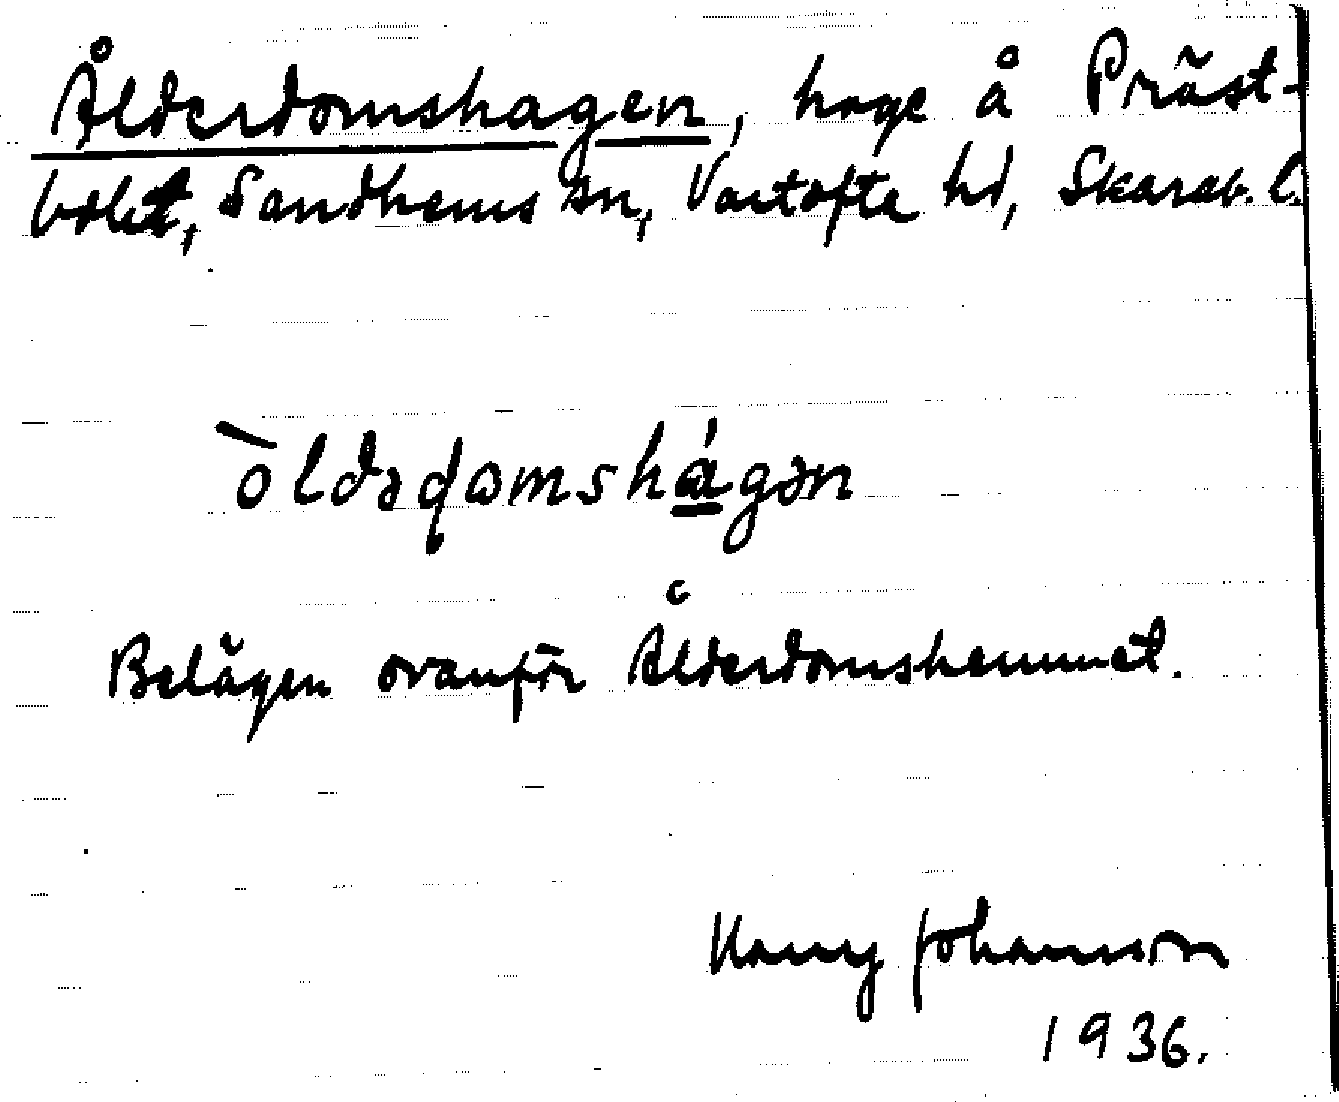 Ålderdomshagen, hage å Präst-
bolet, Sandhems sn, Vartofta hd, Skarab. l.
òldədomshágən
Belägen ovanför Ålderdomshemmet.
Harry Johansson
1936.